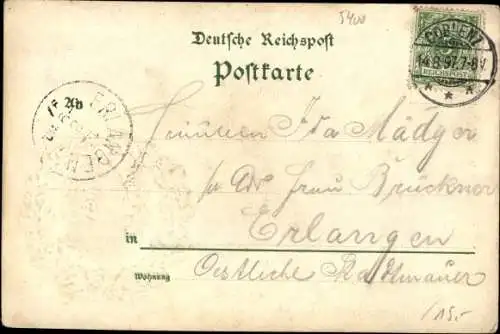 5400
Deutsche Reichspost
Postkarte
COBLENZ
14.8.97.7-8V.
REICHSPOST
An
ERLANGEN
Fräulein Ida Mädger
p/Adr Frau Brückner
in Erlangen
Wohnung Oestliche Stadtmauer
/15.-